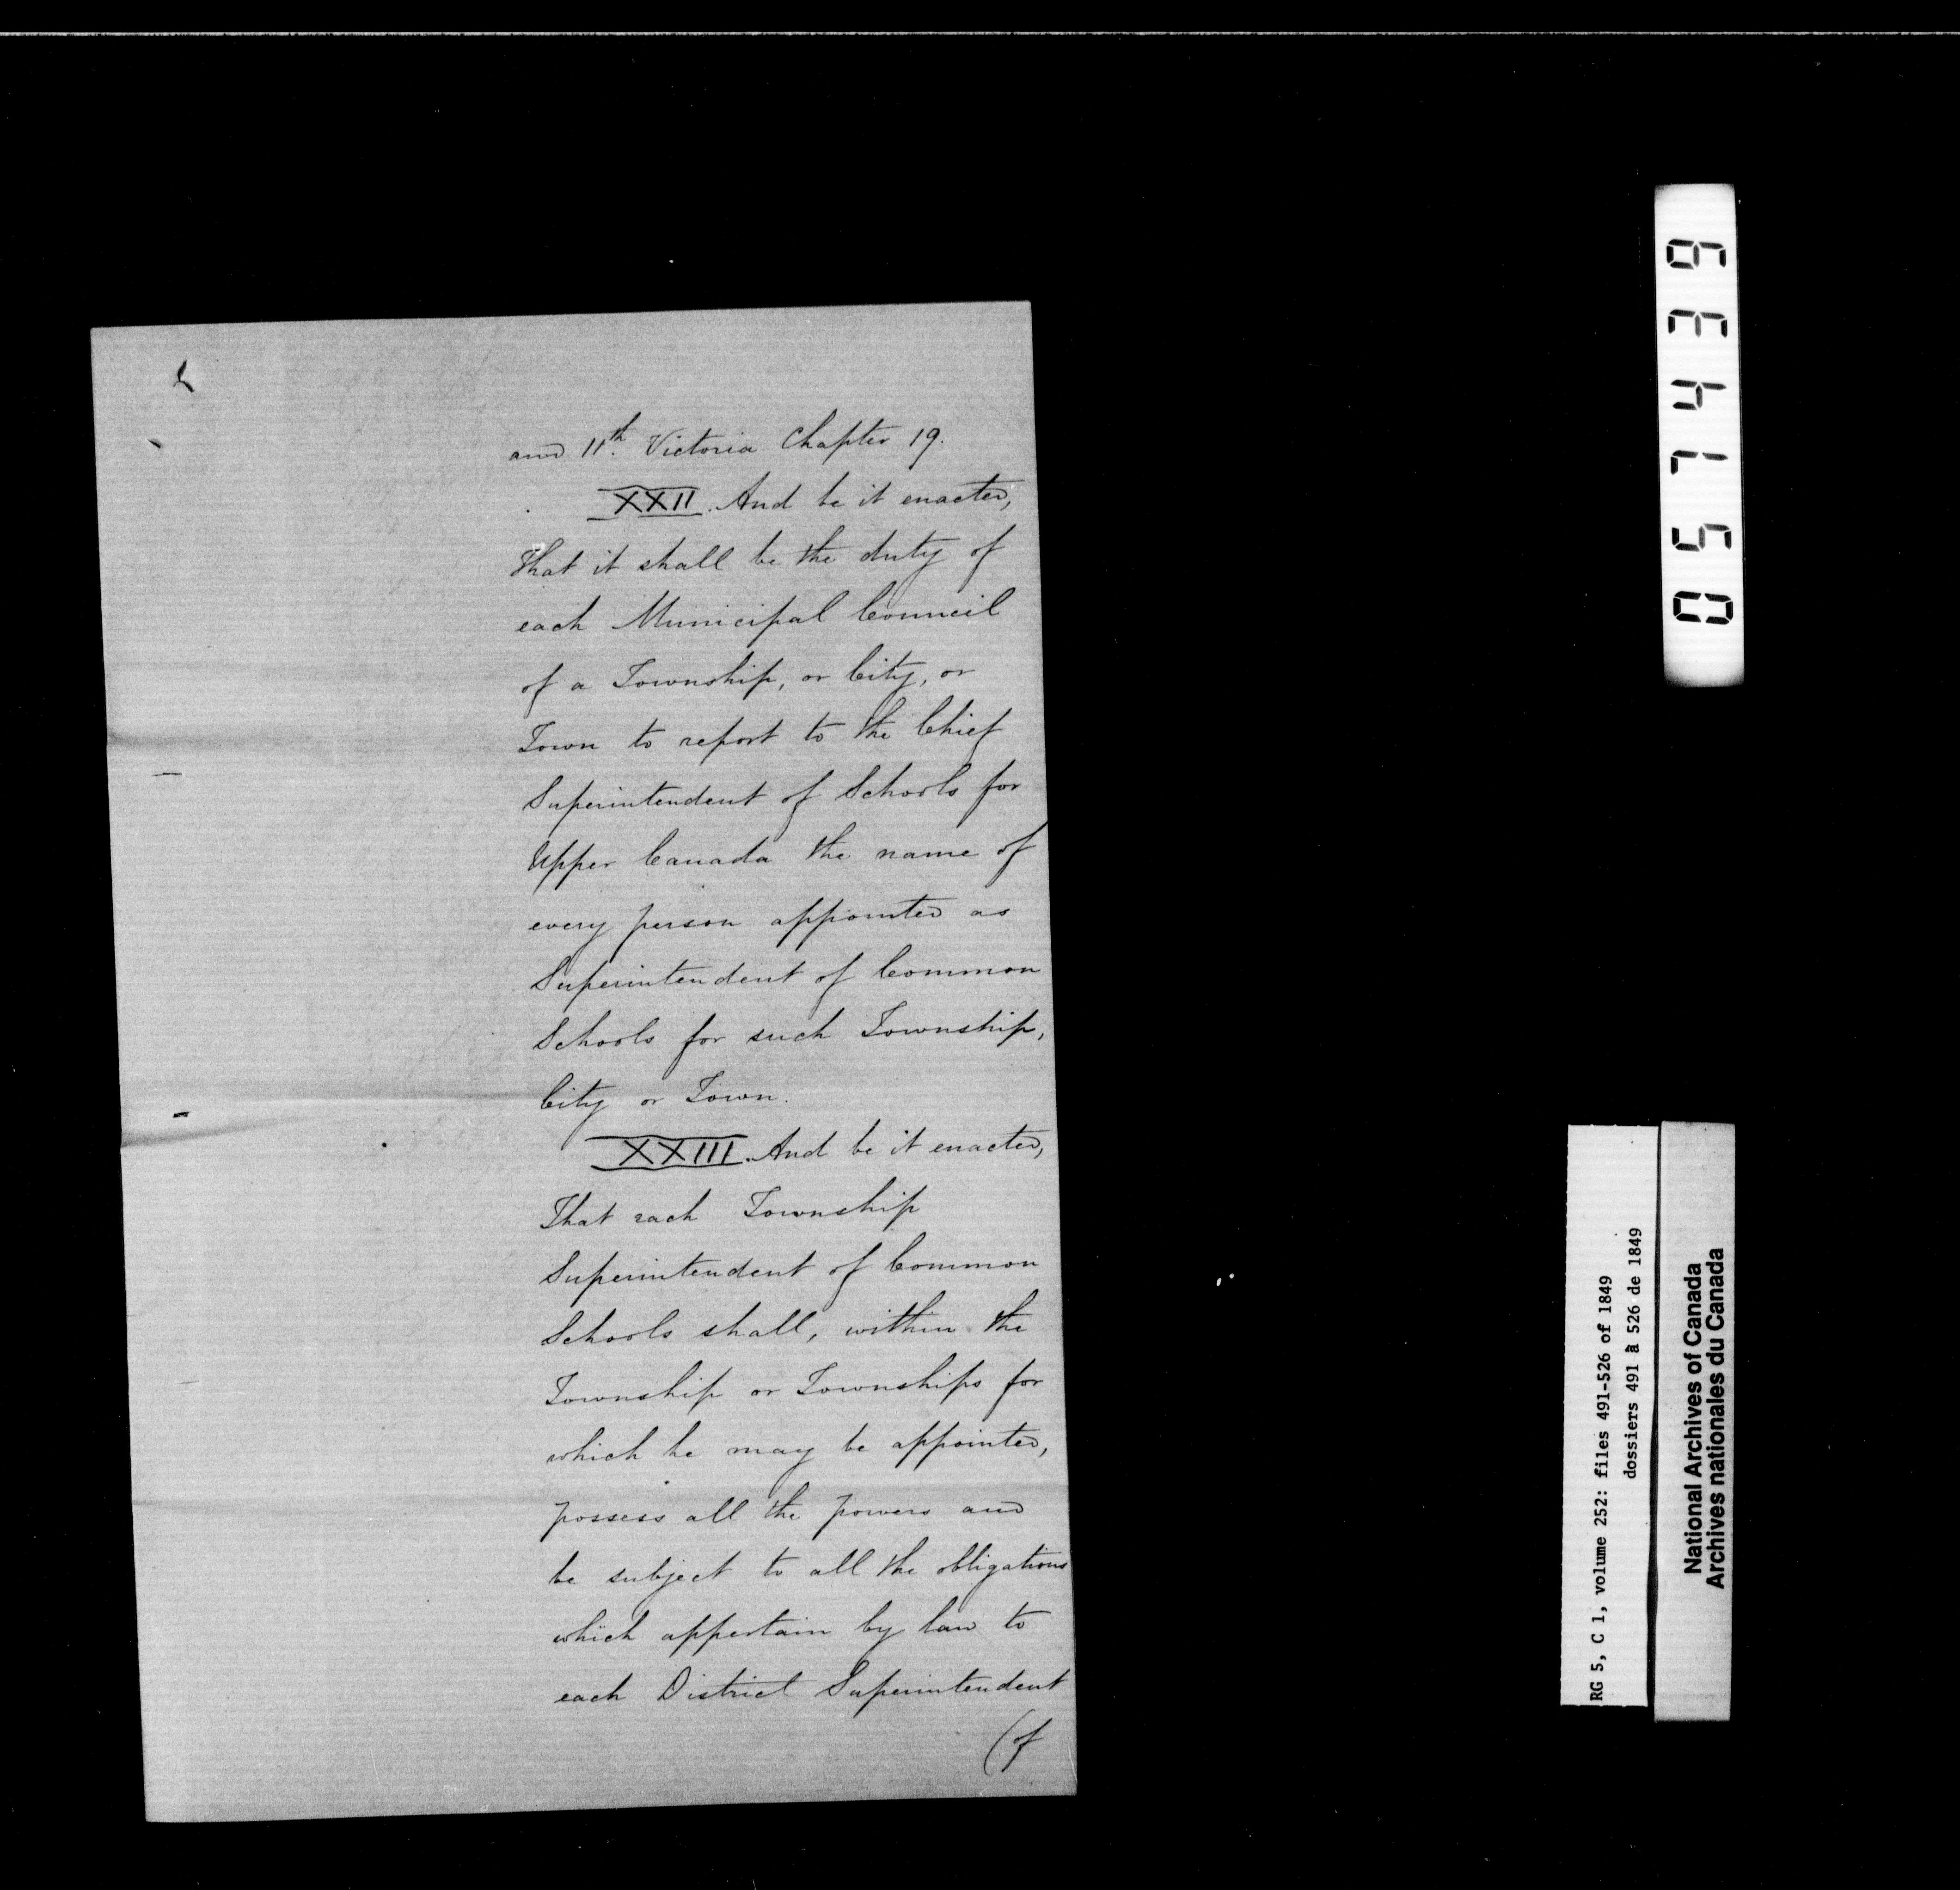 and 11th. Victoria Chapter 19.
XXII. And be it enacted,
That it shall be the duty of
each Municipal Council
of a Township, or City, or
Town to report to the Chief
Superintendent of Schools for
Upper Canada the name of
every person appointed as
Superintendent of Common
Schools for such Township,
City or Town.
XXIII. And be it enacted,
That each Township
Superintendent of Common
Schools shall, within the
Township or Townships for
which he may be appointed,
possess all the powers and
be subject to all the obligations
which appertain by law to
each District Superintendent
(of
051439
RG 5, C 1, volume 252: files 491-526 of 1849
dossiers 491 à 526 de 1849
National Archives of Canada
Archives nationales du Canada